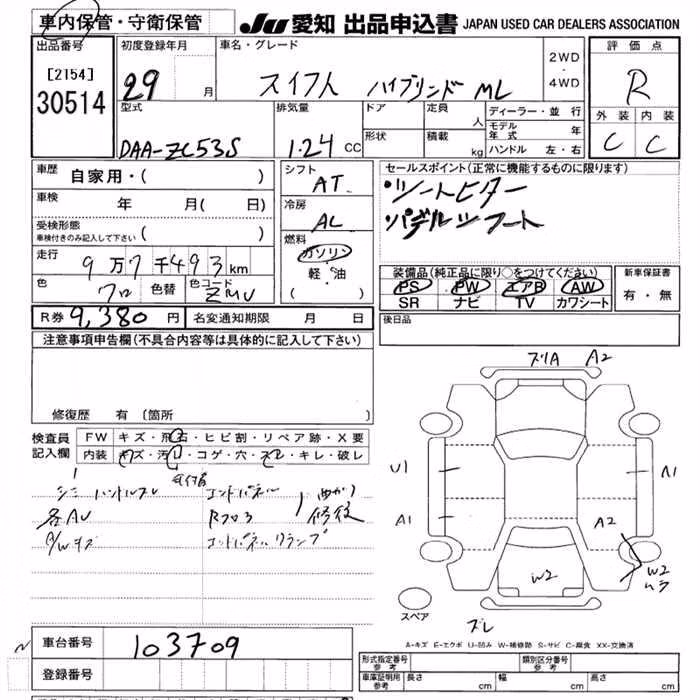 車内保管・守衛保管
JU 愛知 出品申込書 JAPAN USED CAR DEALERS ASSOCIATION
出品番号
[2154]
30514
初度登録年月
29 月
車名・グレード
スイフト ハイブリッド ML
2WD
・
4WD
評価点
R
外装 内装
C C
型式
DAA-ZC53S
排気量
1.24 CC
ドア
定員
人
形状
積載
kg
ディーラー・並行
モデル年式 年
ハンドル 左・右
車歴
自家用・( )
車検
年 月( 日)
受検形態
車検付きのみ記入して下さい ( )
走行
9万7千493km
色
クロ
色替
色コード
ZMV
シフト
AT
冷房
AC
燃料
ガソリン
軽・油
( )
セールスポイント(正常に機能するものに限ります)
・シートヒーター
・パドルシフート
装備品(純正品に限り○をつけてください)
PS PW エアB AW
SR ナビ TV カワシート
新車保証書
有・無
R券 9,380 円
名変通知期限 月 日
後日品
注意事項申告欄(不具合内容等は具体的に記入して下さい)
修復歴 有 〔箇所
検査員
記入欄
FW キズ・飛石・ヒビ割・リペア跡・X要
内装 キズ・汚レ・コゲ・穴・スレ・キレ・破レ
シミ ハンドルスレ
各AU
A/Wキズ
エンドパネル
Rフロア
曲がり
修復
エンドパネルクランプ
ズリA A2
U1
A1
A1
A2
W2
W2
ムラ
ズレ
スペア
A-キズ E-エクボ U-凹み W-補修跡 S-サビ C-腐食 XX-交換済
車台番号
103709
登録番号
形式指定番号
参考
類別区分番号
参考
車庫証明用
参考
長さ cm
幅 cm
高さ cm